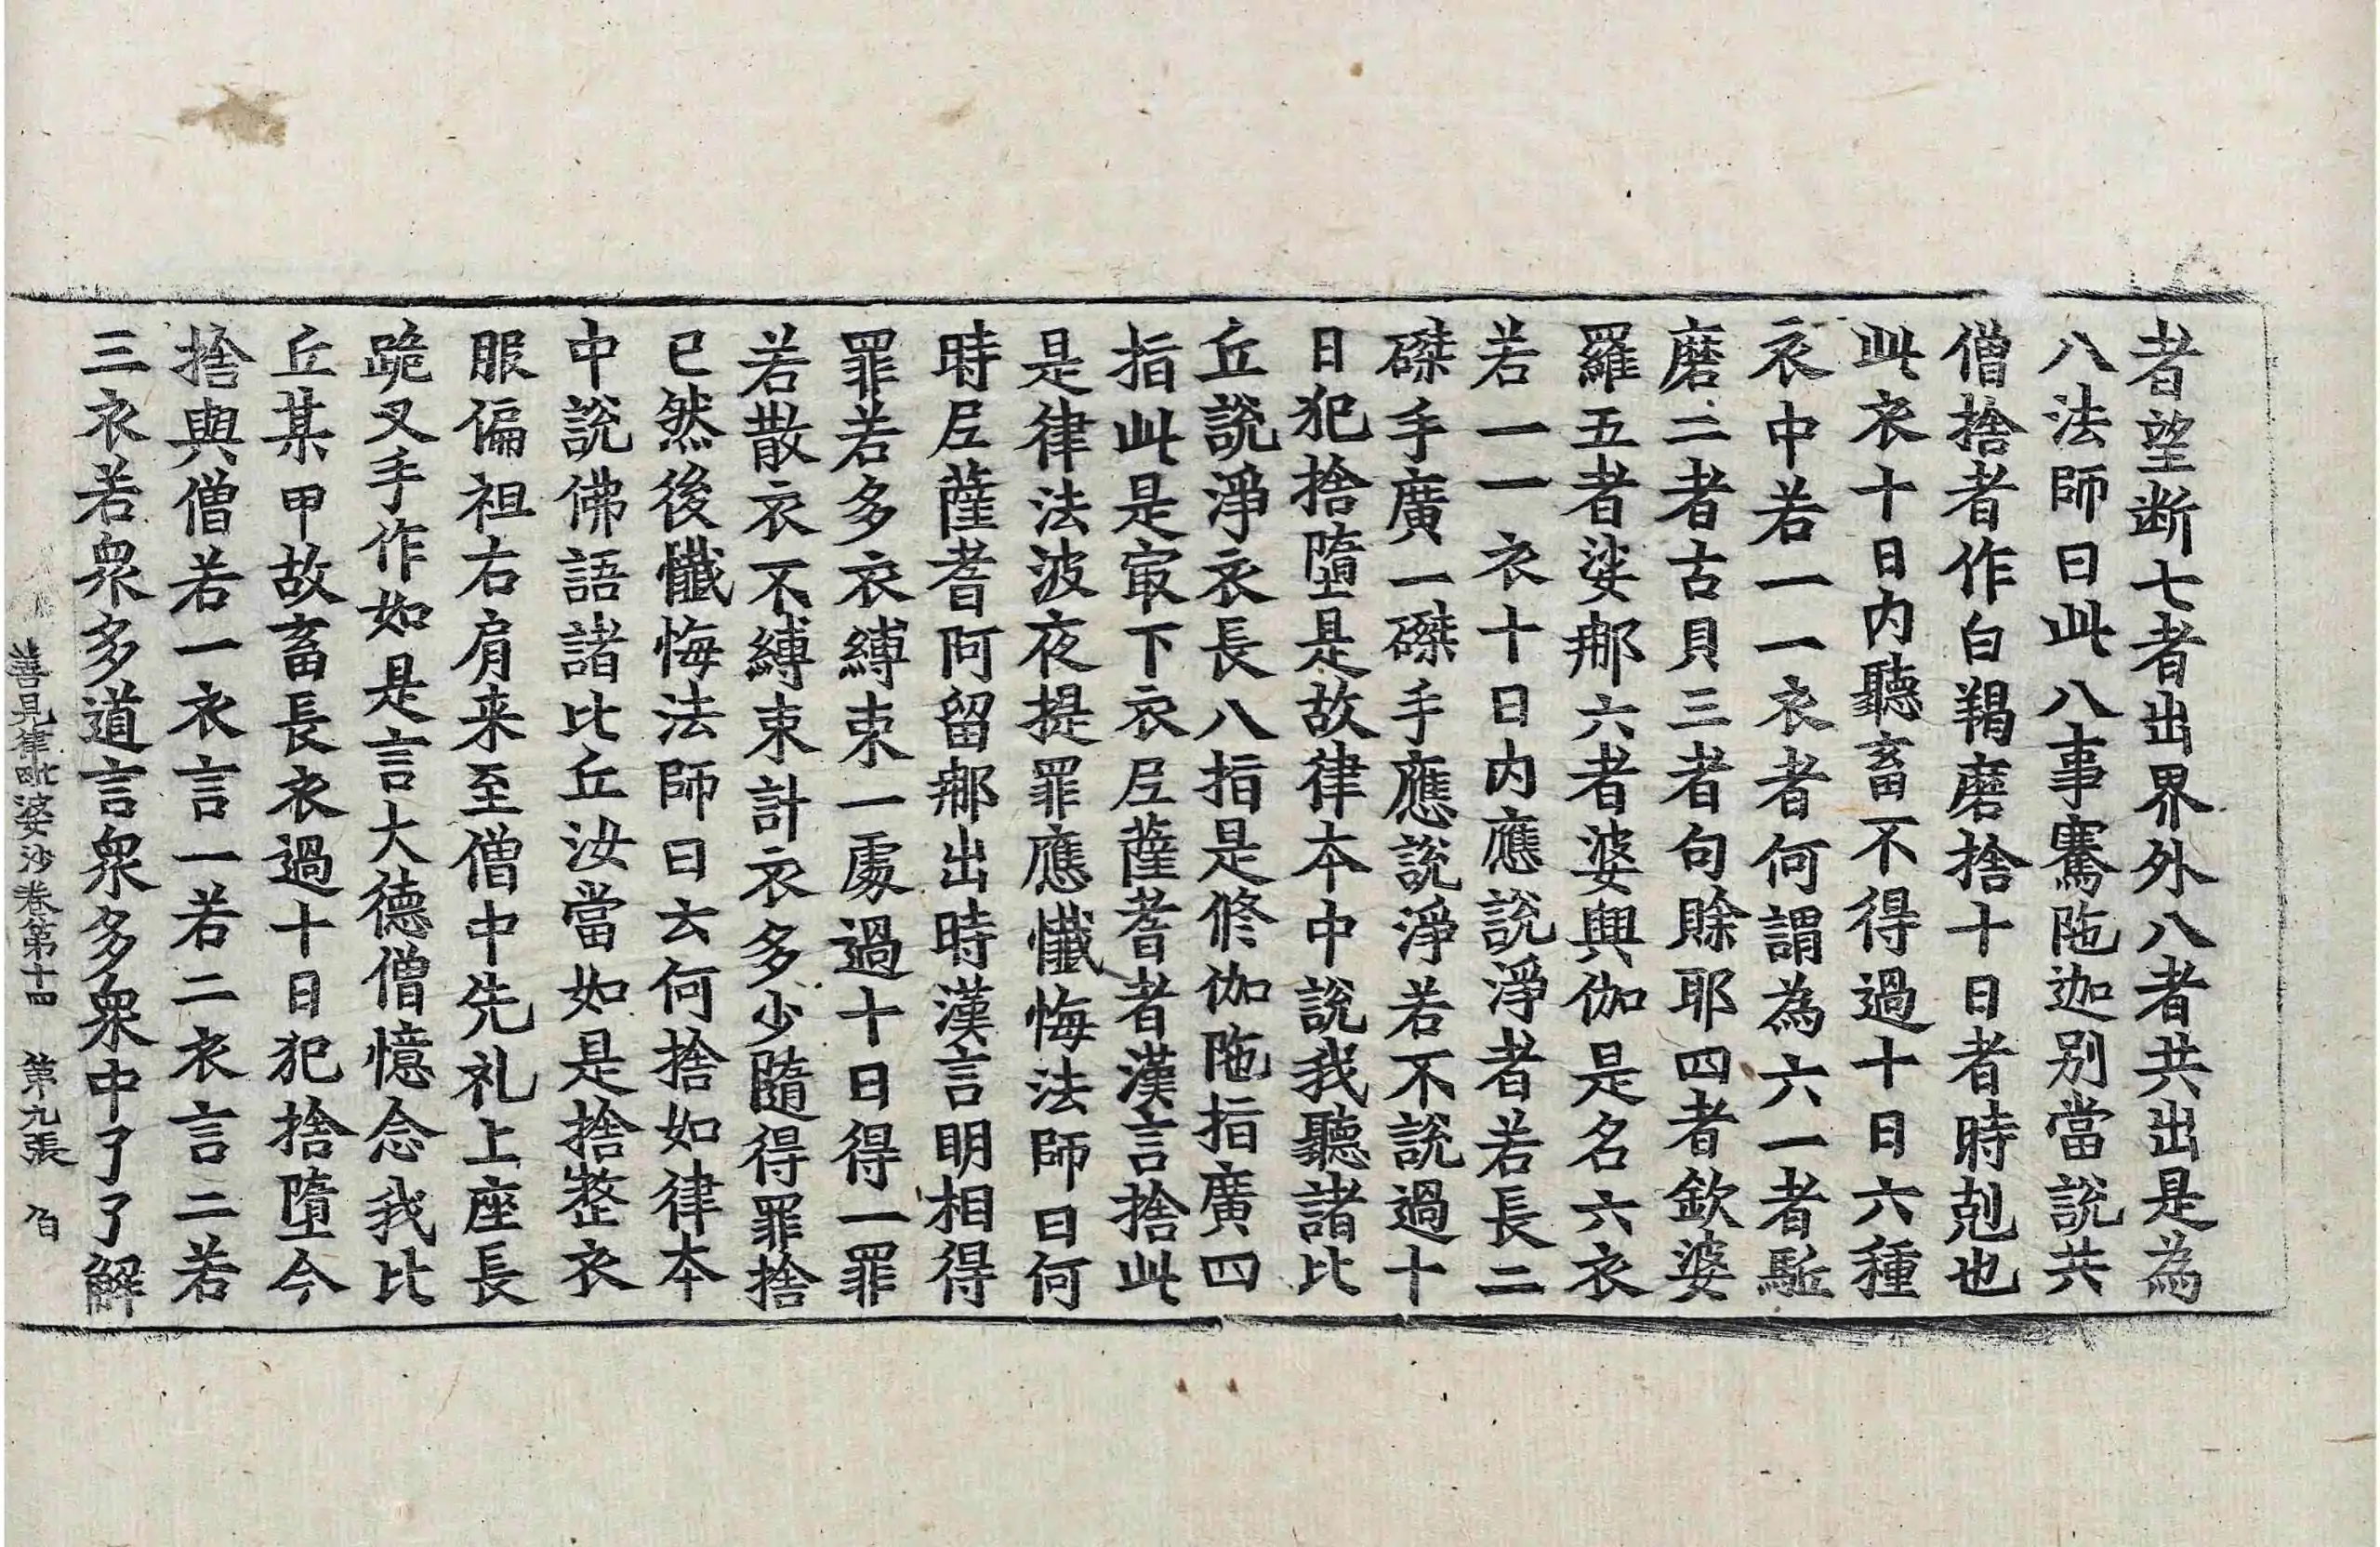 者望断七者出界外八者共出是為
八法師曰此八事騫陁迦别當說共
僧捨者作白羯磨捨十日者時剋也
此衣十日内聽畜不得過十日六種
衣中若一一衣者何謂為六一者駈
磨二者古貝三者句賖耶四者欽婆
羅五者娑𨚗六者婆輿伽是名六衣
若一一衣十日内應說淨者若長二
磔手廣一磔手應說淨若不說過十
日犯捨墮是故律本中說我聽諸比
丘說淨衣長八指是修伽陁指廣四
指此是㝡下衣𡰱薩耆者漢言捨此
是律法波夜提罪應懺悔法師曰何
時𡰱薩耆阿留𨚗出時漢言明相得
罪若多衣縛束一處過十日得一罪
若散衣不縛束計衣多少隨得罪捨
已然後懺悔法師曰云何捨如律本
中說佛語諸比丘汝當如是捨整衣
服偏袒右肩来至僧中先礼上座長
跪叉手作如是言大德僧憶念我比
丘某甲故畜長衣過十日犯捨墮今
捨與僧若一衣言一若二衣言二若
三衣若衆多道言衆多衆中了了解
善見律毗婆沙卷第十四 第九張 伯